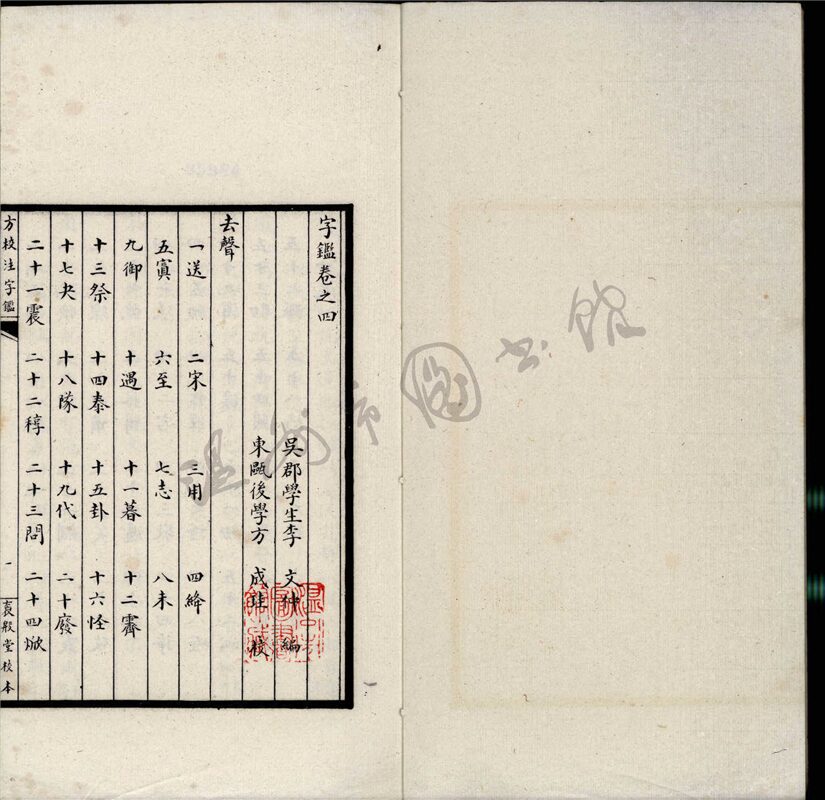 字鑑卷之四
吳郡學生李 文仲 編
東甌後學方 成珪 校
去聲
一送 二宋 三用 四絳
五寘 六至 七志 八未
九御 十遇 十一暮 十二霽
十三祭 十四泰 十五卦 十六怪
十七夬 十八隊 十九代 二十廢
二十一震 二十二稕 二十三問 二十四焮
方校注字鑑
一
裒殷堂校本
溫州市圖書館